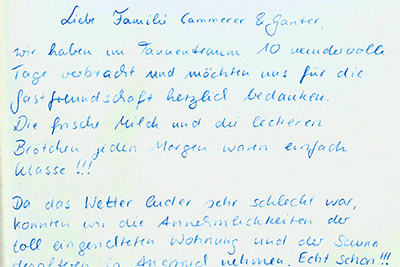 Liebe Familie Cammerer & Ganter,
wir haben im Tannentraum 10 wundervolle
Tage verbracht und möchten uns für die
Gastfreundschaft herzlich bedanken.
Die frische Milch und die leckeren
Brötchen jeden Morgen waren einfach
klasse !!!
Da das Wetter leider sehr schlecht war,
konnten wir die Annehmlichkeiten der
toll eingerichteten Wohnung und der Sauna
des öfteren in Anspruch nehmen. Echt Schön!!!